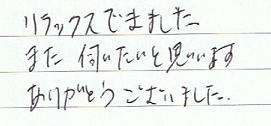 リラックスできました
また伺いたいと思います
ありがとうございました.